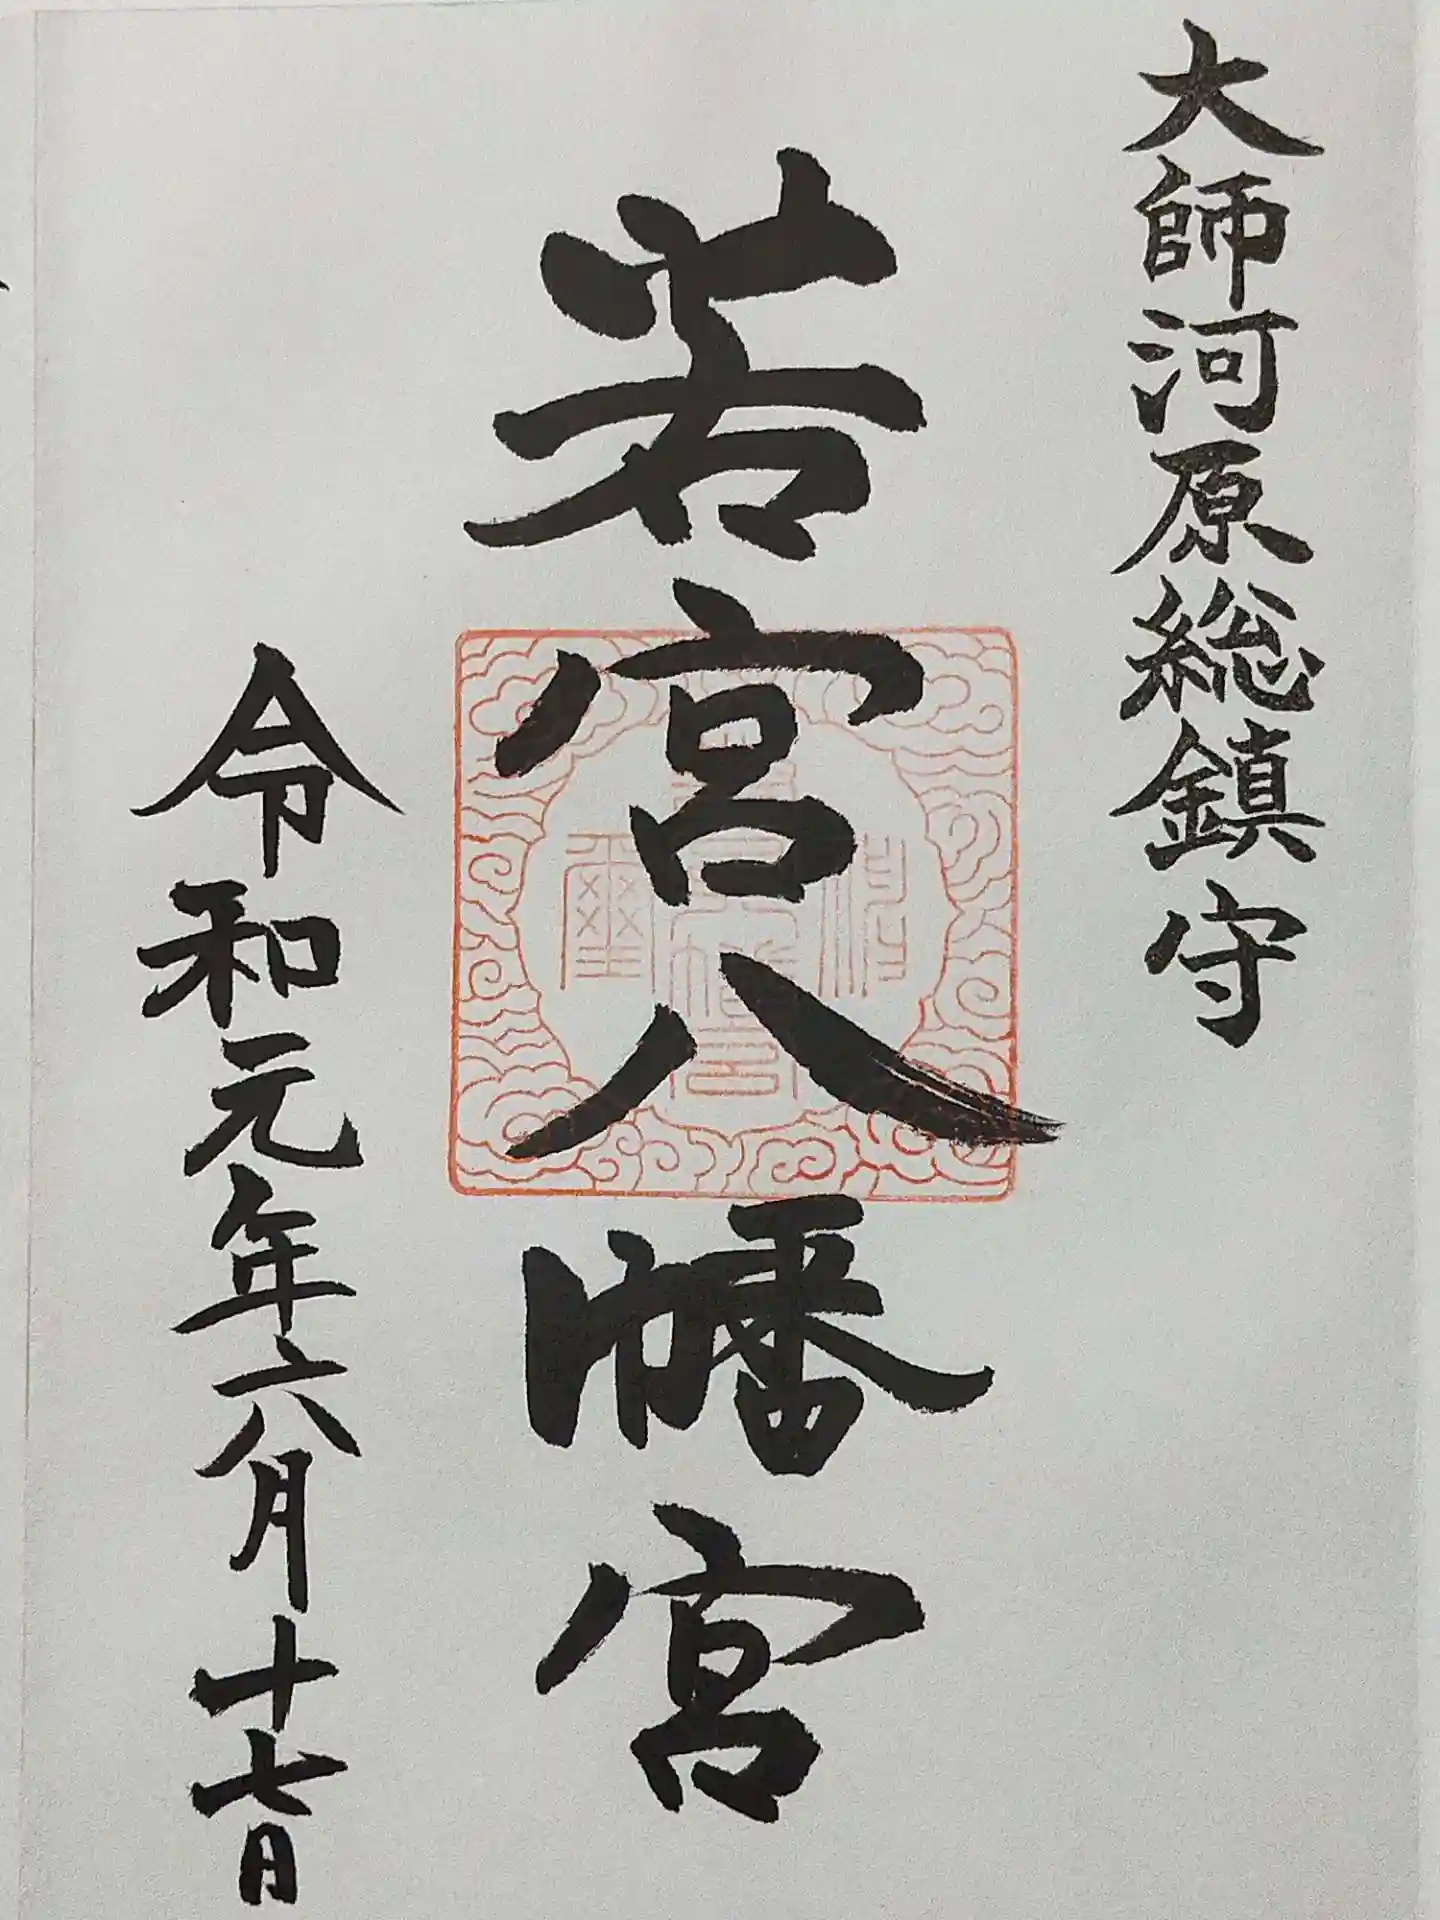 大師河原総鎮守
若宮八幡宮
令和元年六月十七日